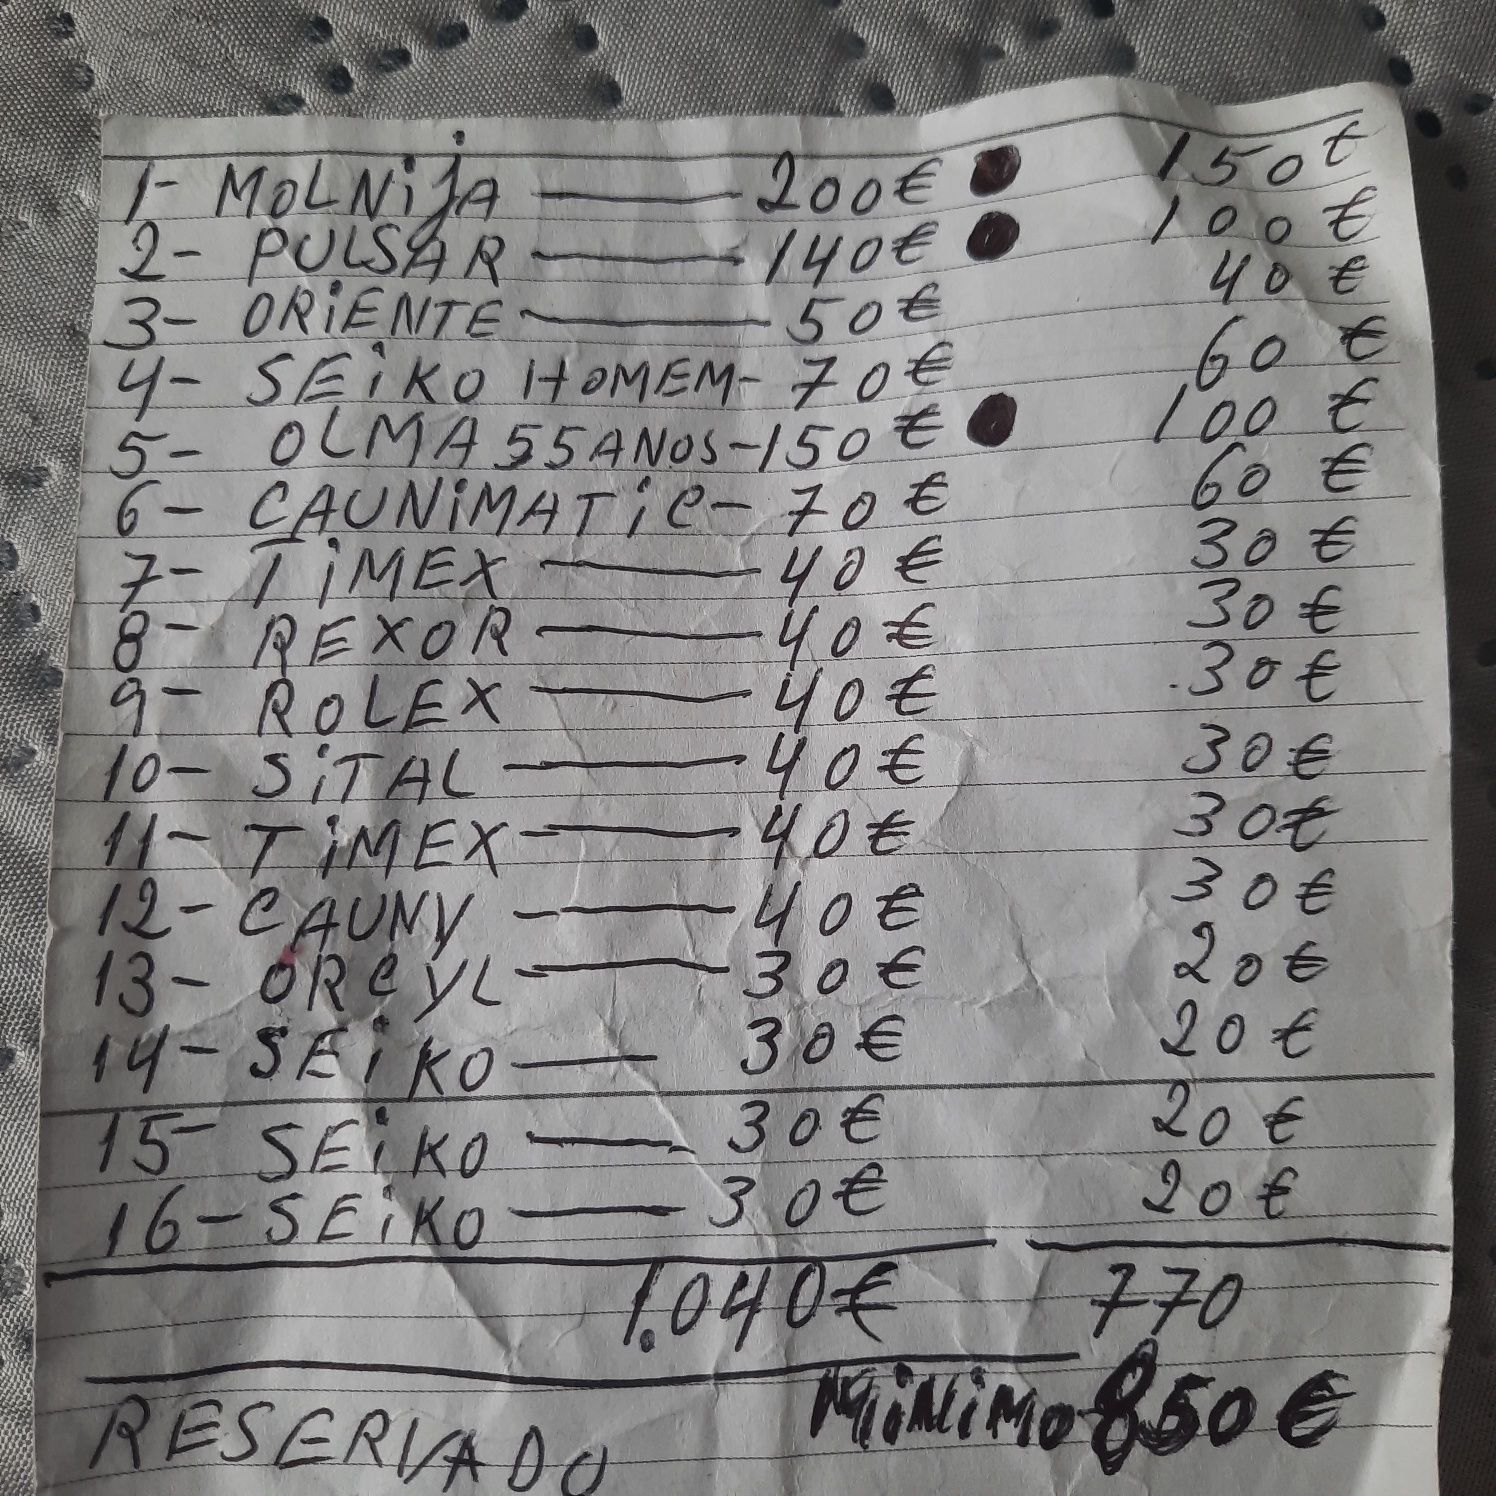 1- MOLNiJA — 200€ ● 150€
2- PULSAR — 140€ ● 100€
3- ORiENTE — 50€ 40€
4- SEiKO HOMEM- 70€ 60€
5- OLMA 55ANOS-150€ ● 100€
6- CAUNiMATiC- 70€ 60€
7- TiMEX — 40€ 30€
8- REXOR — 40€ 30€
9- ROLEX — 40€ 30€
10- SiTAL — 40€ 30€
11- TiMEX — 40€ 30€
12- CAUNY — 40€ 30€
13- ORCYL — 30€ 20€
14- SEiKO — 30€ 20€
15- SEiKO — 30€ 20€
16- SEiKO — 30€ 20€
1.040€ 770
MiNiMO 850€
RESERVADO